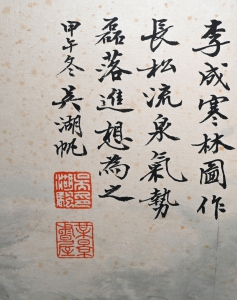 李成寒林圖作
長松流泉氣勢
磊落進想為之
甲午冬吳湖帆